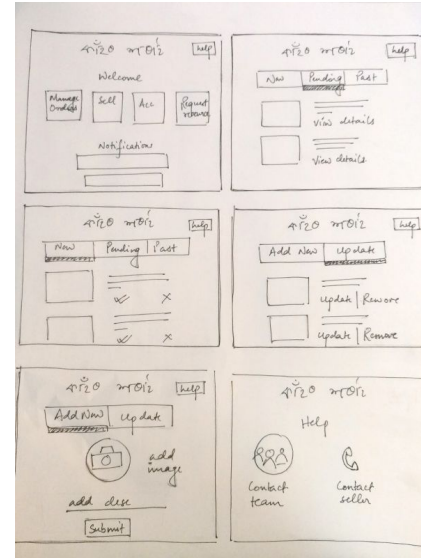 help
Welcome
Manage Orders
Sell
Acc
Request
Notification
help
New | Pending | Past
view details
view details
help
New | Pending | Past
help
Add New | update
update | Remove
update | Remove
help
Add New | update
add
image
add desc
Submit
Help
Contact
team
Contact
seller